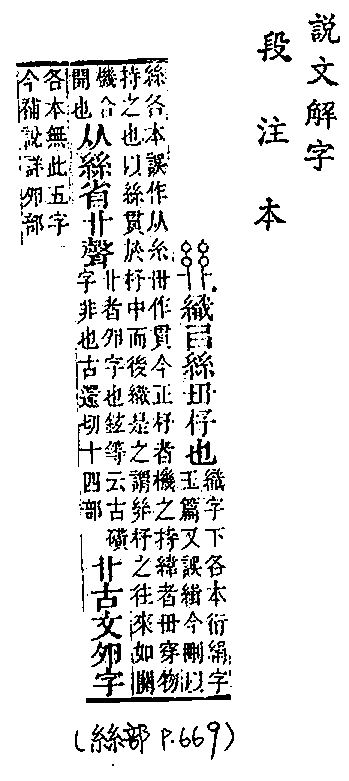 說文解字
段注本
織㠯絲毌杼也
織字下各本衍絹字
玉篇又誤緝今刪以
絲各本誤作从糸毌作貫今正杼者機之持緯者毌穿物
持之也以絲貫於杼中而後織是之謂𢇇杼之往來如關
機合
開也
从絲省丱聲
丱者卵字也鉉等云古礦
字非也古還切十四部
丱古文卵字
各本無此五字
今補說詳卵部
(絲部 P.669)